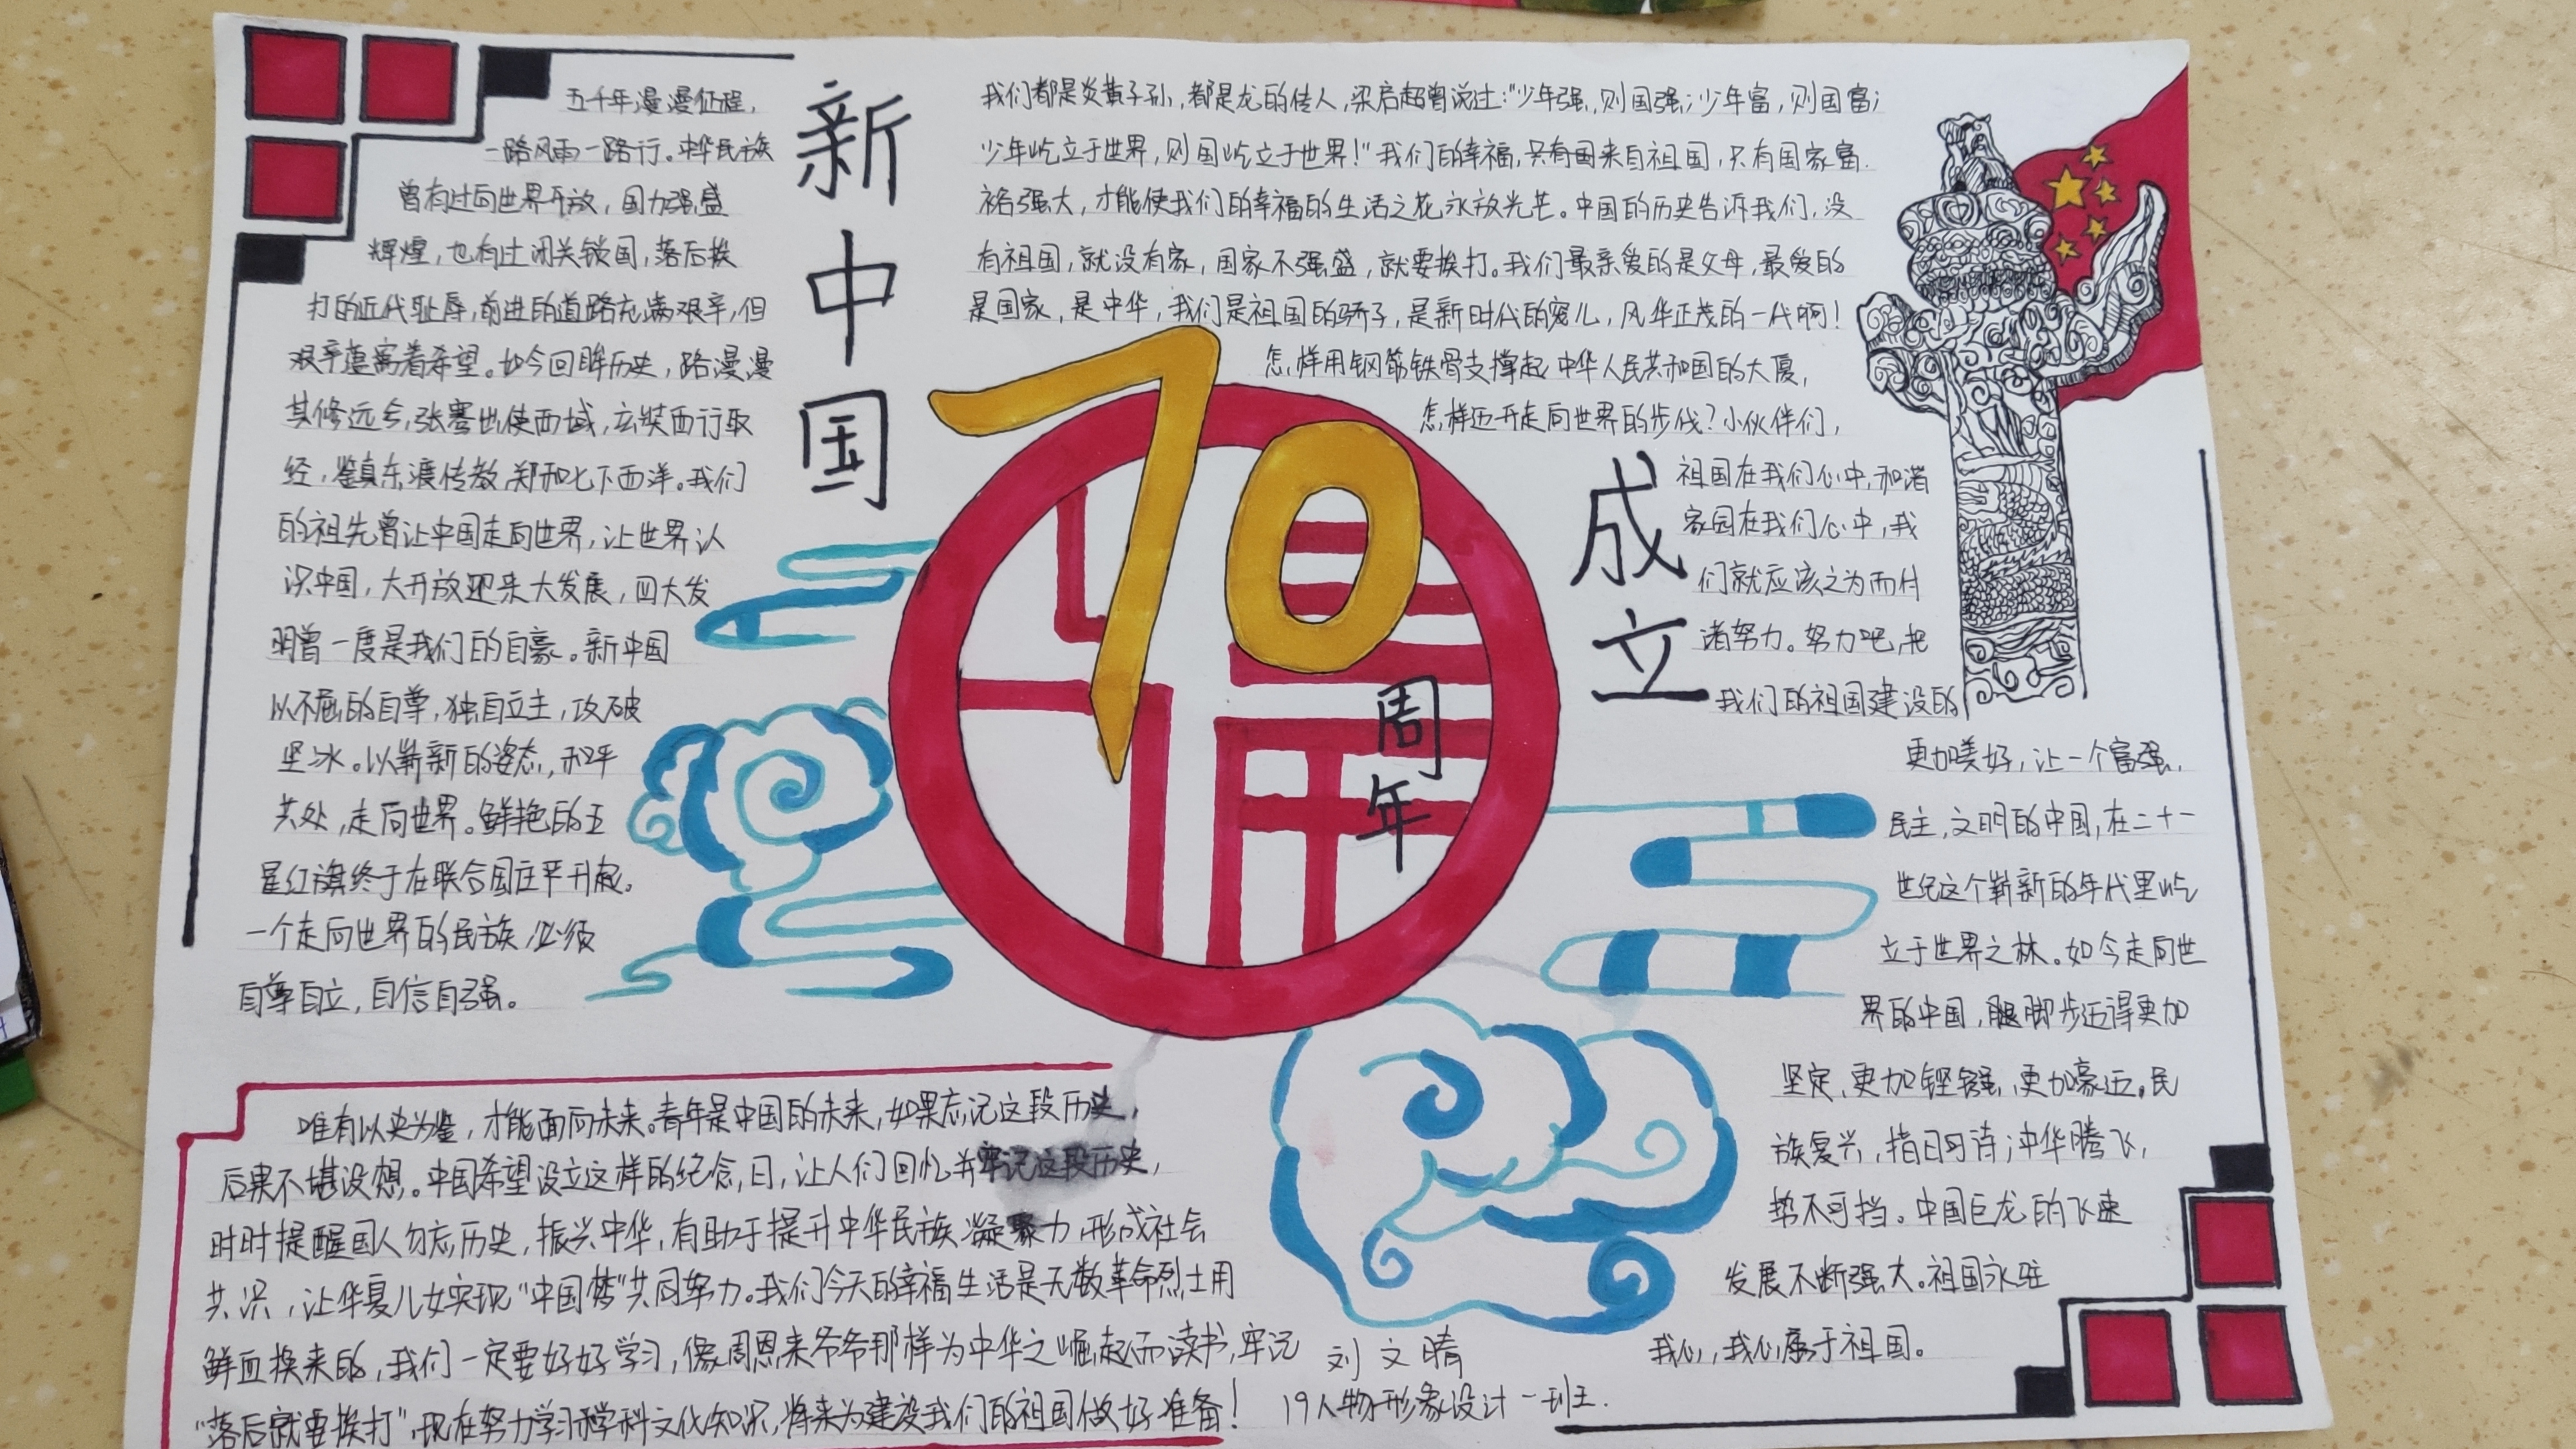 新中国
成立
70
周年
福
五千年漫漫征程，
一路风雨一路行。中华民族
曾有过向世界开放，国力强盛
辉煌，也有过闭关锁国，落后挨
打的近代耻辱，前进的道路充满艰辛，但
艰辛蕴寓着希望。如今回眸历史，路漫漫
其修远兮，张骞出使西域，玄奘西行取
经，鉴真东渡传教，郑和七下西洋。我们
的祖先曾让中国走向世界，让世界认
识中国，大开放迎来大发展，四大发
明曾一度是我们的自豪。新中国
以不屈的自尊，独自立主，攻破
坚冰。以崭新的姿态，和平
共处，走向世界。鲜艳的五
星红旗终于在联合国庄严升起。
一个走向世界的民族，必须
自尊自立，自信自强。
我们都是炎黄子孙，都是龙的传人，梁启超曾说过：“少年强，则国强；少年富，则国富；
少年屹立于世界，则国屹立于世界！”我们的幸福，只有国来自祖国，只有国家富
裕强大，才能使我们的幸福的生活之花永放光芒。中国的历史告诉我们，没
有祖国，就没有家，国家不强盛，就要挨打。我们最亲爱的是父母，最爱的
是国家，是中华，我们是祖国的骄子，是新时代的宠儿，风华正茂的一代啊！
怎样用钢筋铁骨支撑起中华人民共和国的大厦，
怎样迈开走向世界的步伐？小伙伴们，
祖国在我们心中，和谐
家园在我们心中，我
们就应该之为而付
诸努力。努力吧，把
我们的祖国建设的
更加美好，让一个富强、
民主，文明的中国，在二十一
世纪这个崭新的年代里屹
立于世界之林。如今走向世
界的中国，腿脚步迈得更加
坚定，更加铿锵，更加豪迈。民
族复兴，指日可待；中华腾飞，
势不可挡。中国巨龙的飞速
发展不断强大。祖国永驻
我心，我心属于祖国。
唯有以史为鉴，才能面向未来。青年是中国的未来，如果忘记这段历史，
后果不堪设想。中国希望设立这样的纪念日，让人们回忆并牢记这段历史，
时时提醒国人勿忘历史，振兴中华，有助于提升中华民族凝聚力，形成社会
共识，让华夏儿女实现“中国梦”共同努力。我们今天的幸福生活是无数革命烈士用
鲜血换来的，我们一定要好好学习，像周恩来爷爷那样为中华之崛起而读书，牢记
“落后就要挨打”，现在努力学习科学文化知识，将来为建设我们的祖国做好准备！
刘文晴
19人物形象设计一班.